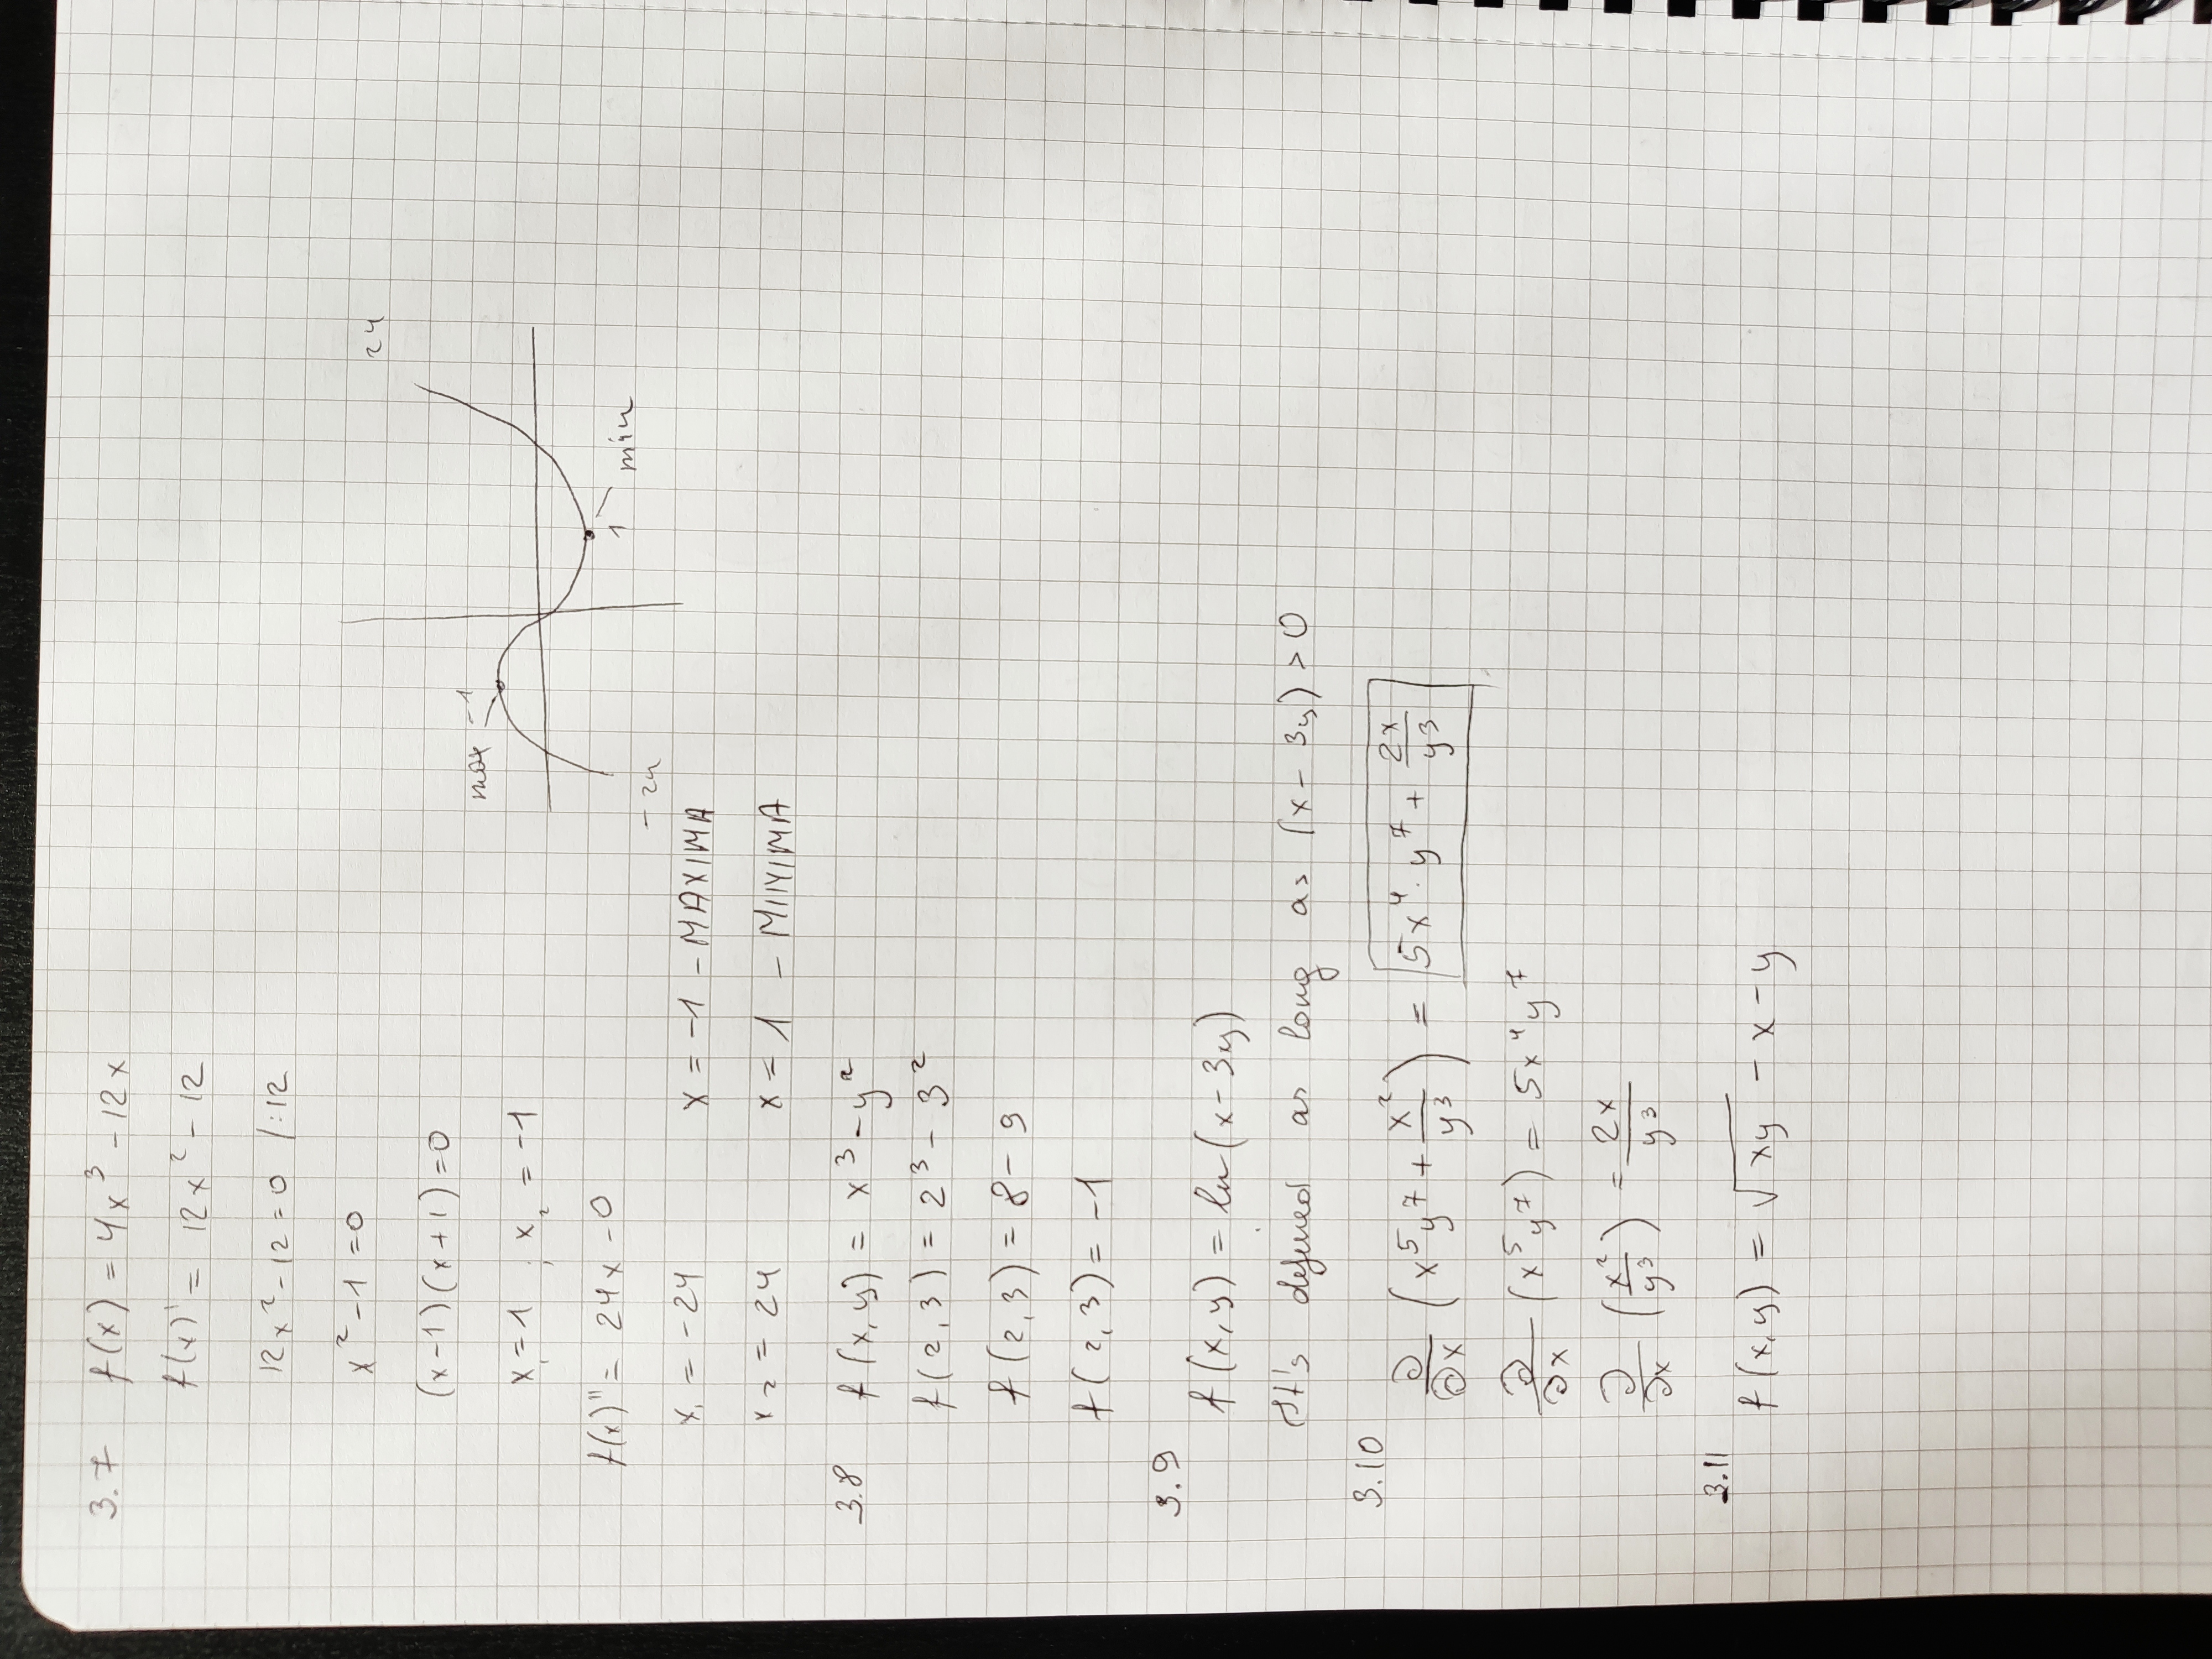 3.7 f(x) = 4x³ - 12x
f(x)' = 12x² - 12
12x² - 12 = 0 /:12
x² - 1 = 0
(x-1)(x+1) = 0
x₁ = 1 ; x₂ = -1
f(x)'' = 24x - 0
x₁ = -24 x = -1 - MAXIMA
x₂ = 24 x = 1 - MINIMA
24
max -1
1 min
-24
3.8 f(x,y) = x³ - y²
f(2,3) = 2³ - 3²
f(2,3) = 8 - 9
f(2,3) = -1
3.9
f(x,y) = ln(x-3y)
It's defined as long as (x - 3y) > 0
3.10
∂/∂x (x⁵y⁷ + x²/y³) = 5x⁴·y⁷ + 2x/y³
∂/∂x (x⁵y⁷) = 5x⁴y⁷
∂/∂x (x²/y³) = 2x/y³
3.11
f(x,y) = √xy - x - y